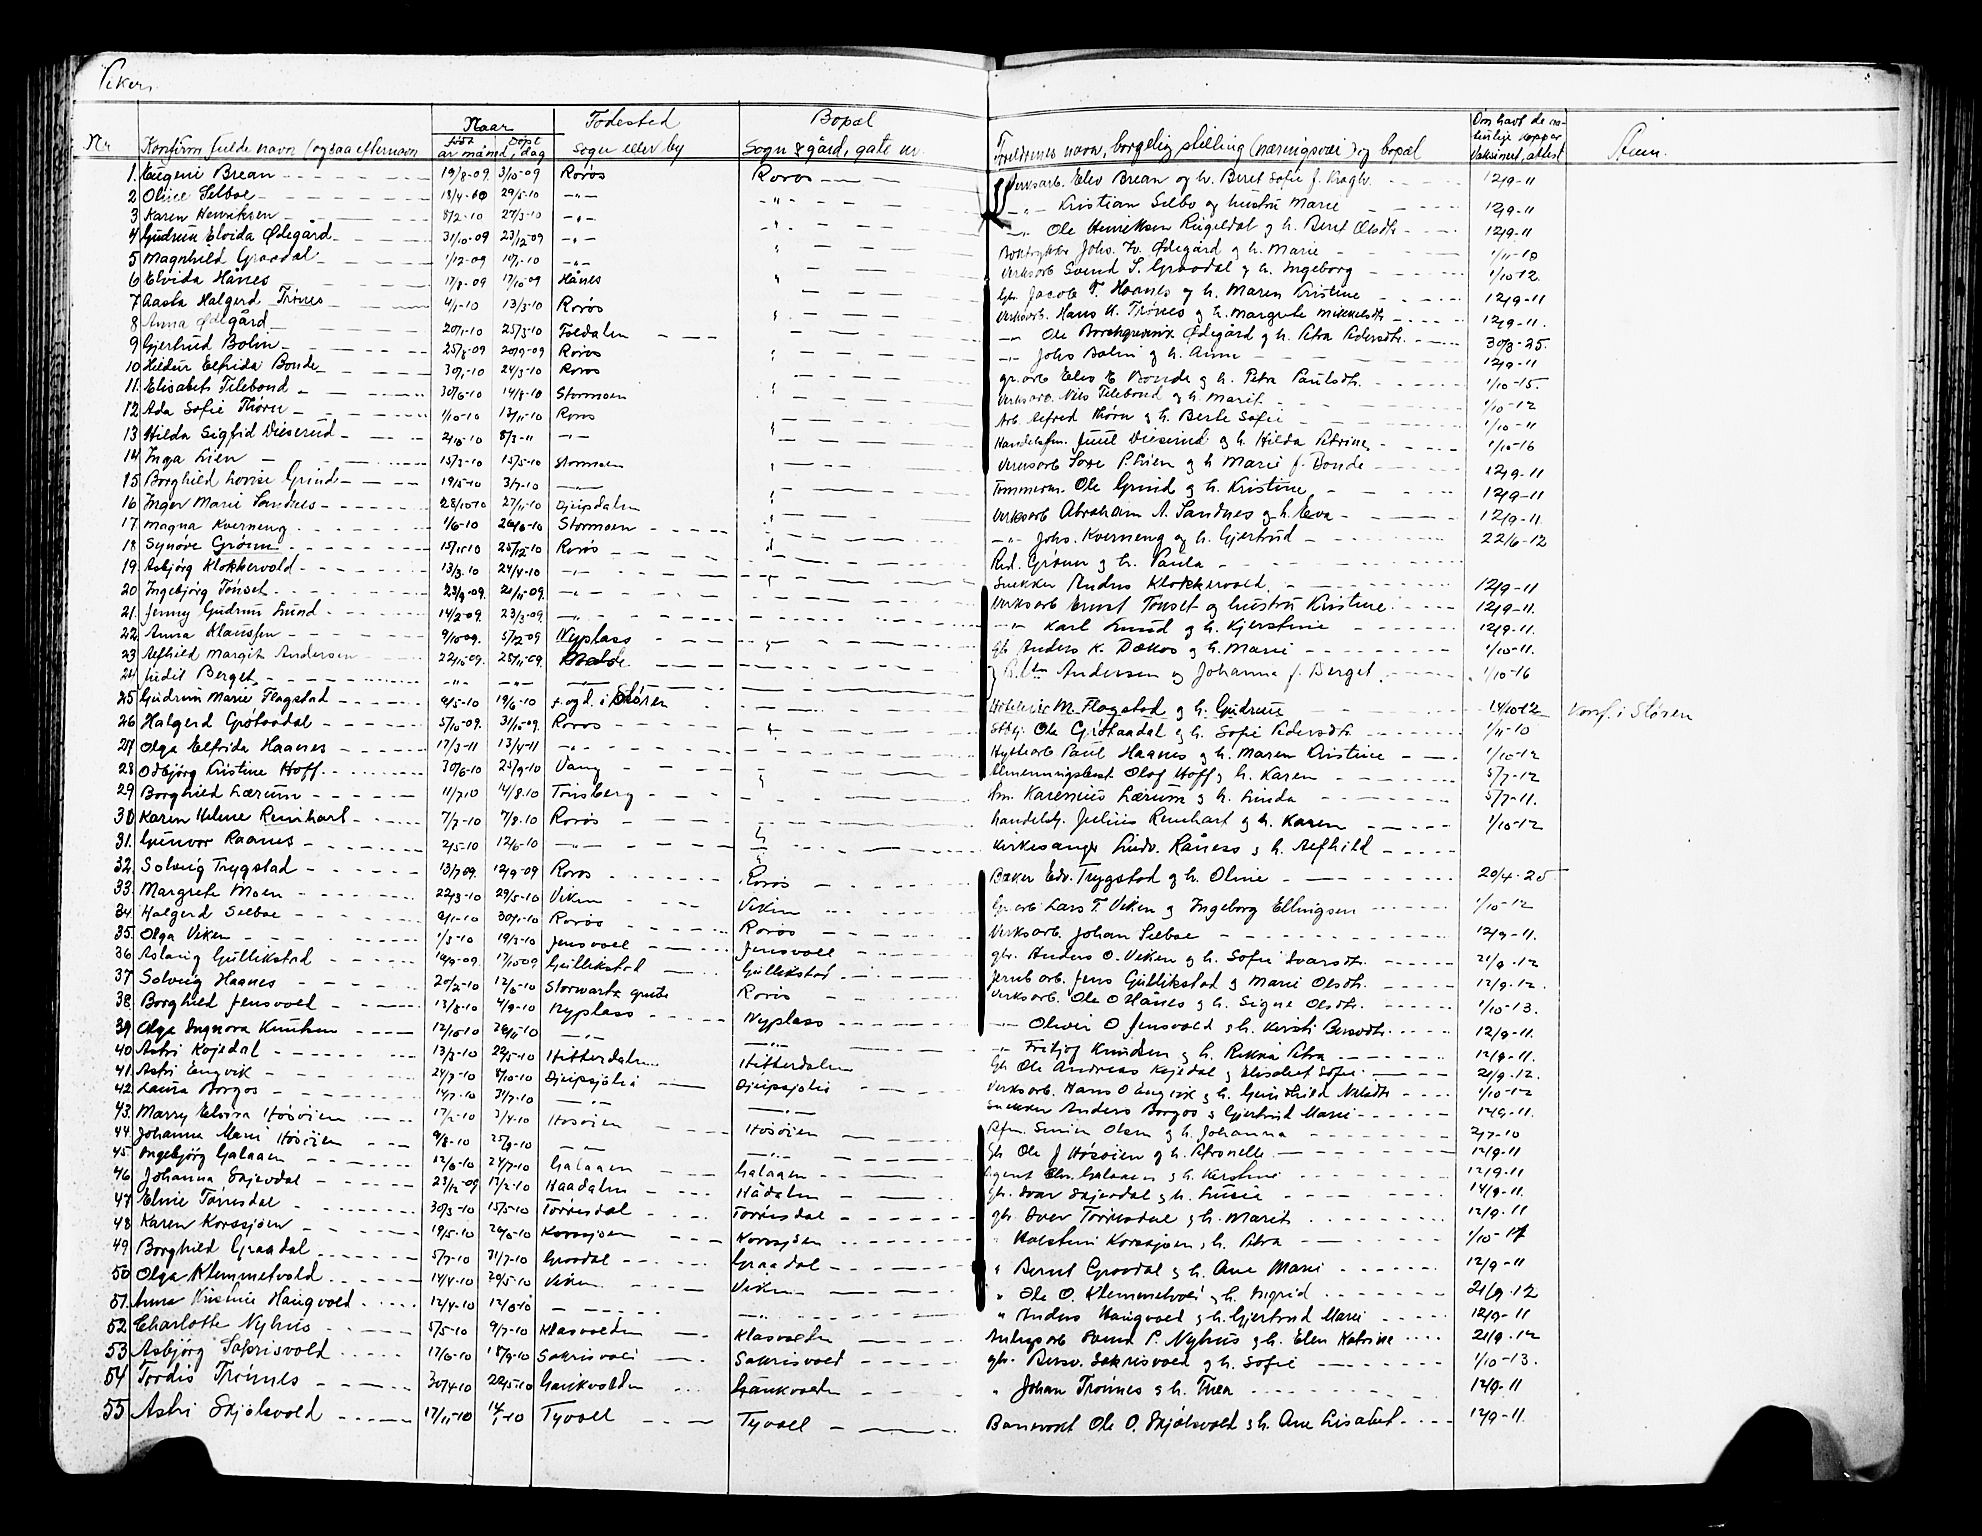 Piker.
Nr. Konfirm. fulde navn (ogsaa efternavn Naar født år måned, døpt dag Fødested sogn eller by Bopæl Sogn & gård, gate nr. Foreldrenes navn, borgelig stilling (næringsvei) og bopæl Om havt de na- turlige kopper Vaksinert, attest Anm.
1. Eugeni Brean 19/8-09 3/10-09 Røros Røros Verksarb. Elev Brean og h. Beret Sofie f. 12/9-11
2 Oline Selboe 18/4-60 29/5-10 -"- -"- -"- Kristian Selbo og hustru Marie 12/9-11
3 Karen Henriksen 8/2-10 27/3-10 -"- " -"- Ole Henriksen Ringeldal og h. Beret Olsdtr 12/9-11
4 Gudrun Elvida Ødegård 31/10-09 23/12-09 -"- " Boktrykker Johs. Ødegård og h. Marie 1/11-10
5 Magnhild Graadal 1/12-09 10/1-10 -"- " Verksarb Svend S. Graadal og h. Ingeborg 1/10-12
6 Elvida Hånes 17/8-09 17/10-09 Hånes " Gbr Jacob T. Haanes og h. Maren Kristine 12/9-11
7 Aasta Halgerd Trønes 4/1-10 13/3-10 Røros " Verksarb. Hans K. Trønes og h. Margrete Mikkelsdtr 12/9-11.
8 Anna Ødegård 20/1-10 25/3-10 Foldalen " -"- Ole Borchgrevink Ødegård og h. Petra Pedersdtr. 30/3-25.
9 Gjertrud Bolin 25/8-09 20/9-09 Røros " -"- Johs Bolin og h. Anne 12/9-11
10 Hildur Elfrida Bonde 30/1-10 24/3-10 Røros " gr.arb Elev E Bonde og h. Petra Paulsdtr. 1/10-15
11. Elisabeth Tilebond 30/6-10 14/8-10 Stormoen " Verksarb. Nils Tilebond og h. Marit 1/10-12
12 Ada Sofie Thørn 1/10-10 13/11-10 Røros " Arb. Alfred Thørn og h. Berte Sofie 1/10-11
13 Hilda Sigfrid Dieserud 2/10-10 8/3-11 -"- " Handelsfm. Juul Dieserud og h. Hilda Petrine 1/10-16
14 Inga Lien 13/3-10 15/5-10 Stormoen " Verksarb Tore P. Lien og h Marie f. Bonde 12/9-11
15 Borghild Lovise Grind 19/5-10 3/7-10 -"- " Tømmerm. Ole Grind og h. Kristine 12/9-11
16 Inger Marie Sandnes 28/10-10 27/11-10 Djupdalen " Verksarb Abraham A. Sandnes og h. Eva 12/9-11.
17. Magna Kverneng 1/6-10 26/6-10 Stormoen " -"- Johs. Kverneng og h. Gjertrud 22/6-12
18 Synøve Grønn 15/11-10 25/12-10 Røros " Red. Grønn og h. Paula
19. Asbjørg Klokkervold 13/3.10 24/4-10 -"- " Snekker Anders Klokkervold. 12/9-11
20 Ingebjørg Tønset 23/9-09. 21/11-09. -"- Verksarb Ernst Tønset og hustru Kristine 12/9-11.
21. Jenny Gudrun Lund 14/2-09 23/3-09. -"- -"- Karl Lund og h. Kjerstine 12/9-11.
22. Anna Klausen 9/10-09. 5/12-09 Nyplass " Gb Anders K. Dækos og h. Marie 1/10-11.
23 Alfhild Margith Andersen 22/10-09. 28/11-09. Andersen og Johanna f. Berget 1/10-16
24 Judit Berget -"- -"-
25 Gudrun Marie Flagstad 9/5-10 19/6-10 f. og d. i Støren Hoteleier M. Flagstad og h. Gudrun 14/10-12 Konf. i Støren
26 Halgerd Grøtaadal 5/10-09. 31/10-09. Røros " Ole Grøtaadal og h. Sofie Pedersdtr 1/11-10
27 Olga Elfrida Haanes 17/3-11 13/4-11 -"- Hyttearb Paul Haanes og h. Maren Kristine 1/10-12
28 Odbjørg Kristine Hoff 30/6-10 25/9-10 Vang " Olaf Hoff og h. Karen 5/7-12
29 Borghild Lærum 11/7.10 14/8.10 Tønsberg Karenius Lærum og h. Linda 5/7-11.
30 Karen Helene Reinhart 7/7-10 7/8.10 Røros Handelsb. Julius Reinhart og h. Karen 1/10-12
31. Gunvor Raanes 2/5-10 12/6-10 -"- " Kirkesanger Ludv. Rånes og h. Alfhild
32. Solveig Trygstad 13/7 09. 12/9-09 Røros Røros Baker Edv. Trygstad og h. Oline 20/4-25
33. Margrete Moen 22/3-10 29/5-10 Viken Viken Gr.arb Lars T. Viken og Ingeborg Ellingsen 1/10-12
34 Halgerd Selboe 2/1-10 30/1-10 Røros Røros Verksarb. Johan Selboe 12/9-11.
35. Olga Viken 1/3-10 19/3-10 Jensvoll Jensvoll gbr. Anders O. Viken og h. Sofie Ivarsdtr. 21/9-12
36 Aslaug Gullikstad 19/9-09. 17/10 09 Gullikstad Gullikstad Jernb.arb. Jens Gullikstad og Marie Olsdtr. 12/9-12.
37 Solveig Haanes 20/2-10 12/6-10 Storwarts grube Røros Verksarb. Ole O Hånes og h. Signe Olsdtr. 1/10-13.
38 Borghild Jensvold 13/8-10 4/9-10 Nyplass Nyplass -"- Oliver O Jensvold og h. Kirsti Bersvdtr. 12/9-11.
39 Olga Ingnora Knutsen 12/10-10 20/11-10 -"- -"- -"- Fritjof Knudsen og h. Rikka Petra 12/9-11.
40 Astri Kojedal 13/3-10 22/5-10 Hitterdalen Hitterdalen Gb Ole Andreas Kojedal og Elisabet Sofie 21/9-12.
41. Astri Engvik 24/7-10 8/10-10 Djupsjølia Djupsjølia Verksarb. Hans O Engvik og h. Gunhild Nilsdtr 1/10-12
42. Laura Borgos 14/7-10 31/7-10 -"- -"- Snekker Anders Borgos og Gjertrud Marie 12/9-11.
43. Marry Elvira Høsøien 17/2-10 3/4-10 Høsøien Høsøien Simen Olsen og h. Johanna 2/7-10
44. Johanne Marie Høsøien 9/8-10 25/9-10 -"- -"- Gb Ole J Høsøien og h. Petronelle 12/9-11
45. Ingebjørg Galaaen 12/6-10 24/7-10 Galaaen Galaaen Agent Galaaen og h. Kerstine 12/9-11
46 Johanna Skjevdal 23/12-09 13/2-10 Haadalen Hådalen gb. Ivar Skjevdal og h. Lusie 14/9-11.
47 Elvie Tørresdal 30/3-10 15/5-10 Tørresdal Tørresdal gb. Iver Tørresdal og h. Marit 12/9-11
48 Karen Korssjøen 19/5-10 26/6-10 Korssjøen Korssjøen " Halstein Korssjøen og h. Petra 1/10-17
49 Borghild Graadal 5/7-10 31/7-10 Graadal Graadal " Bernt Graadal og h. Ane Marie 12/9-11
50 Olga Klemmetvold 14/4-10 29/5-10 Viken Viken " Ole O. Klemmetvold og h. Ingrid 21/9-12
51. Anna Kristine Haugvold 12/4-10 12/6-10 -"- " Anders Haugvold og h. Gjertrud Marie 12/9-11
52 Charlotte Nyhus 5/5-10 9/7-10 Klasvolden Klasvolden Anlegsarb Svend P. Nyhus og h. Elen Katrine 21/9-12
53 Asbjørg Sakrisvold 17/6-10 18/9-10 Sakrisvold Sakrisvold gb. Bersv. Sakrisvold og h. Sofie 1/10-13.
54 Tordis Trønnes 30/4-10 22/5-10 Gaukvolden Gaukvolden " Johan Trønnes og h. Thea 12/9-11
55 Astri Skjølsvold 17/11-10 1-10 Tyvoll Tyvoll Banevokt Ole O. Skjølsvold og h. Ane Lisabet 12/9-11.